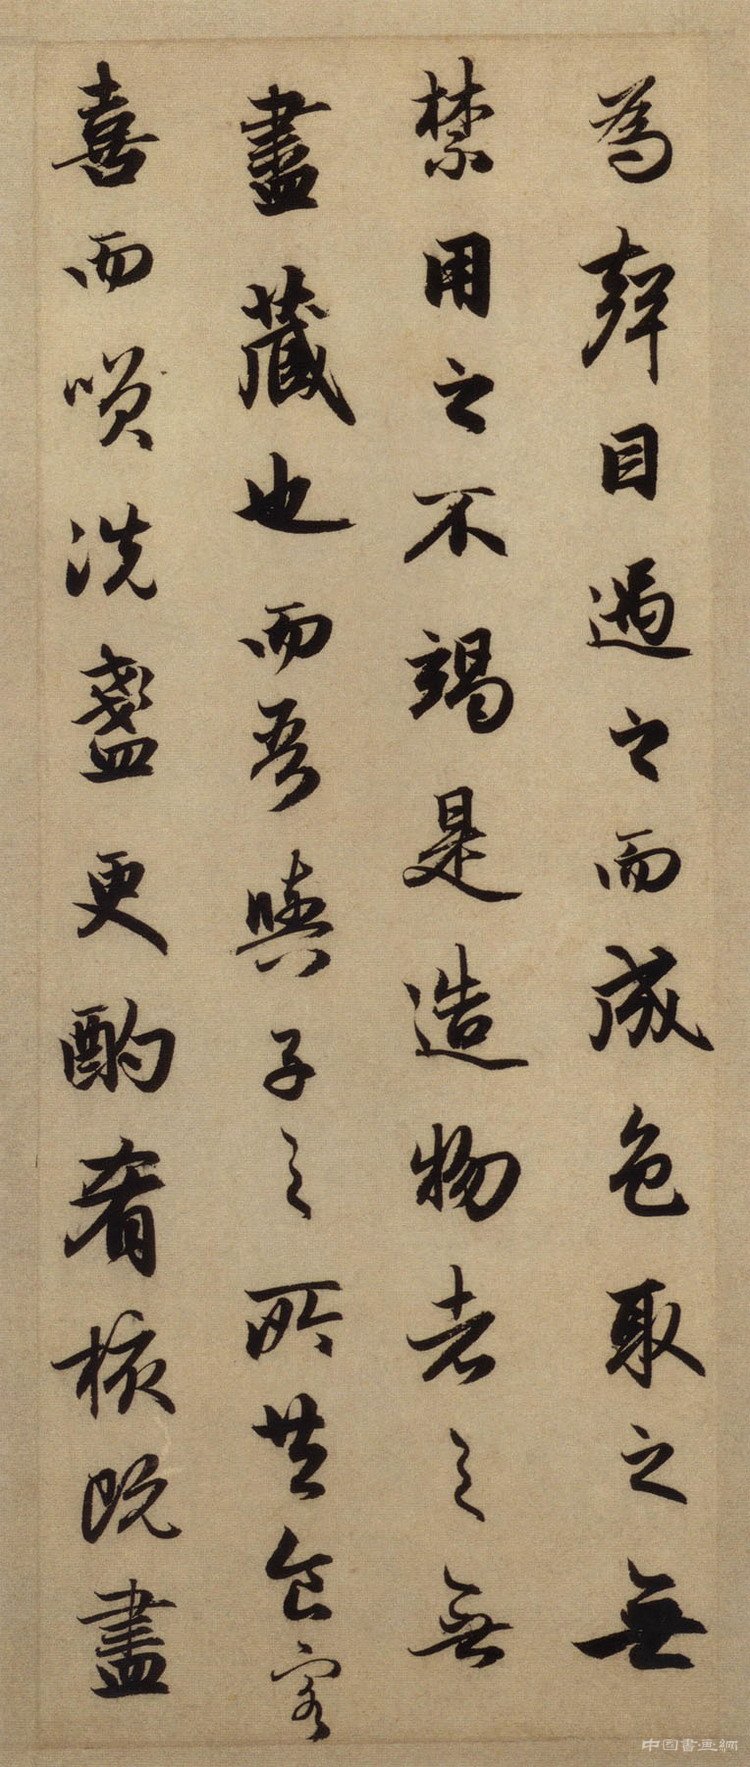 為聲目遇之而成色取之無
禁用之不竭是造物者之無
盡藏也而吾與子之所共食客
喜而唉洗盞更酌肴核既盡
中国書画網